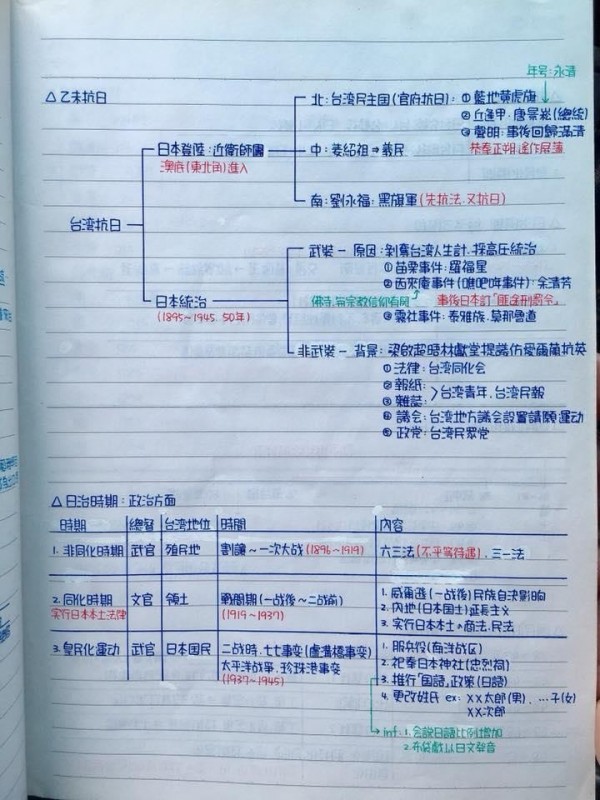 年号:永清
△乙未抗日
北:台湾民主国(官府抗日):①藍地黃虎旗
②丘逢甲·唐景崧(總統)
③聲明:事後回歸滿清
恭奉正朔,遙作屏藩
日本登陸:近衛師團
澳底(東北角)進入
中:姜紹祖⇒義民
南:劉永福:黑旗軍(先抗法,又抗日)
台湾抗日
武裝-原因:剝奪台湾人生計,採高压統治
①苗栗事件:羅福星
②西來庵事件(噍吧哖事件)·余清芳
事後日本訂「匪徒刑罰令」
③霧社事件:泰雅族·莫那魯道
日本統治
(1895~1945 50年)
非武裝-背景:梁啟超時林獻堂提議仿愛爾蘭抗英
①法律:台湾同化会
②報紙:
③雜誌:
>台湾青年.台湾民報
④議会:台湾地方議会設置請願運动
⑤政党:台湾民眾党
△日治時期:政治方面
時期 總督 台湾地位 時間 內容
1.非同化時期 武官 殖民地 割讓~一次大战(1896~1919) 六三法(不平等待遇),三一法
2.同化時期 文官 領土 戰間期(一战後~二战前) 1.威爾遜(一战後)民族自決影响
实行日本本土法律 (1919~1937) 2.內地(日本国土)延長主义
3.实行日本本土の商法.民法
3.皇民化運动 武官 日本国民 二战時.七七事变(盧溝橋事变) 1.服兵役(南洋战区)
太平洋战爭.珍珠港事变 2.祀奉日本神社(忠烈祠)
(1937~1945) 3.推行「国語」政策(日語)
4.更改姓氏 ex: XX太郎(男)、…子(女)
XX次郎
inf:1.会說日語比例增加
2.布袋戲以日文發音